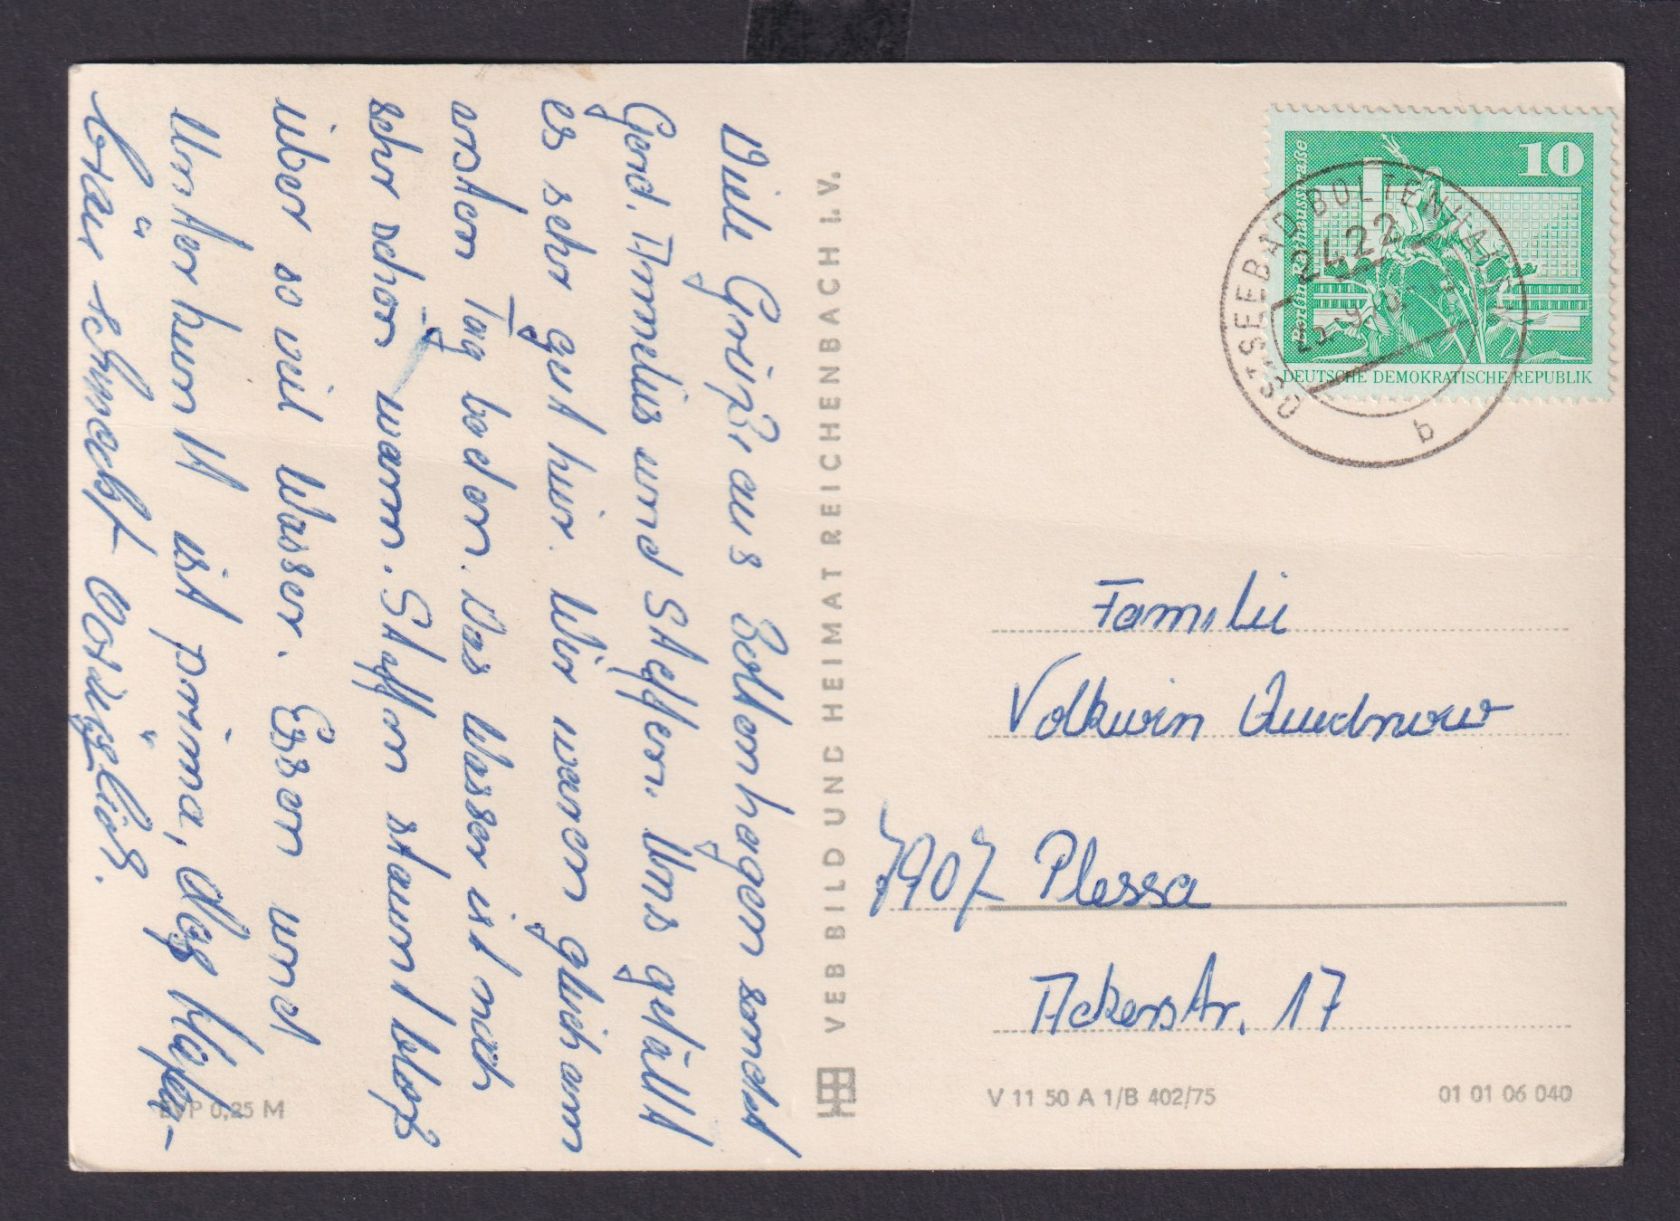 Viele Grüße aus Boltenhagen sendet
Gerd, Annelis und Steffen. Uns gefällt
es sehr gut hier. Wir waren gleich am
ersten Tag baden. Das Wasser ist noch
sehr schön warm. Steffen staunt bloß
über so viel Wasser. Essen und
Unterkunft ist prima, das Hafen-
bräu schmeckt vorzüglich.
EVP 0,25 M
VEB BILD UND HEIMAT REICHENBACH I.V.
10
Berlin Rathausstraße
DEUTSCHE DEMOKRATISCHE REPUBLIK
OSTSEEBAD BOLTENHAGEN
2422
b
Familie
Volkwin Quednow
7907 Plessa
Ackerstr. 17
V 11 50 A 1/B 402/75
01 01 06 040